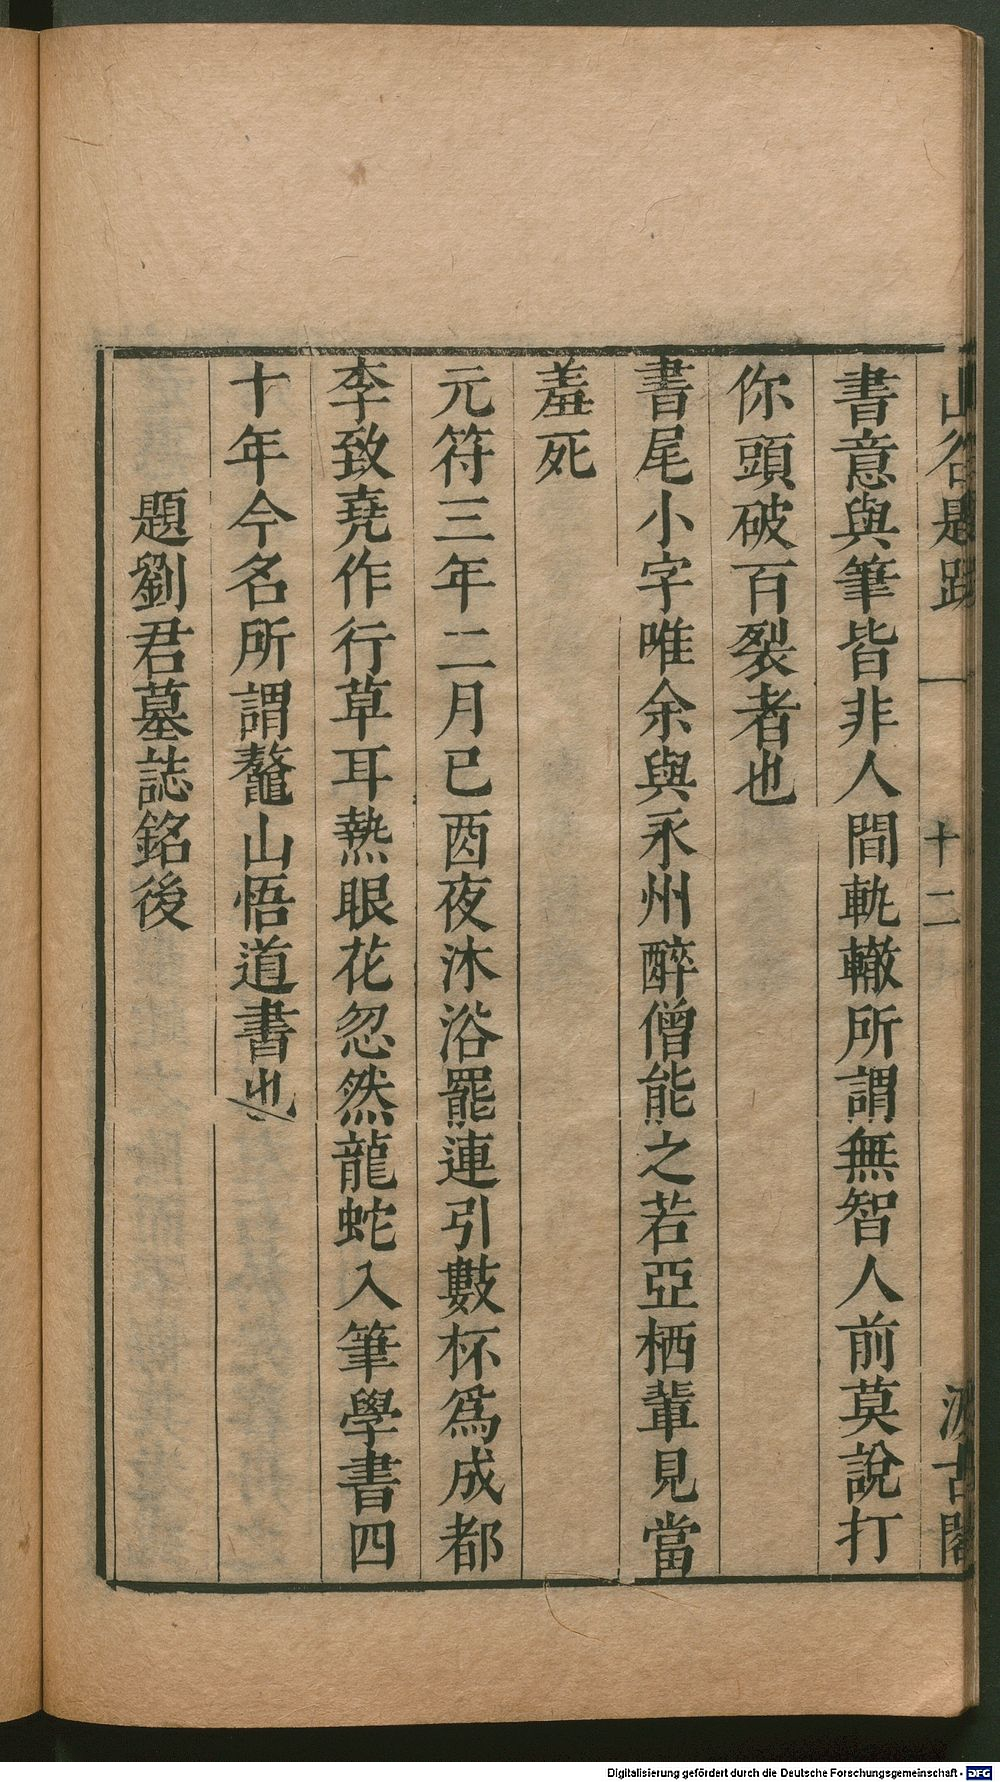 山谷題跋 一 十二 汲古閣
書意與筆皆非人間軌轍所謂無智人前莫說打
你頭破百裂者也
書尾小字唯余與永州醉僧能之若亞栖輩見當
羞死
元符三年二月己酉夜沐浴罷連引數杯爲成都
李致堯作行草耳熱眼花忽然龍蛇入筆學書四
十年今名所謂鼇山悟道書也
題劉君墓誌銘後
Digitalisierung gefördert durch die Deutsche Forschungsgemeinschaft - DFG